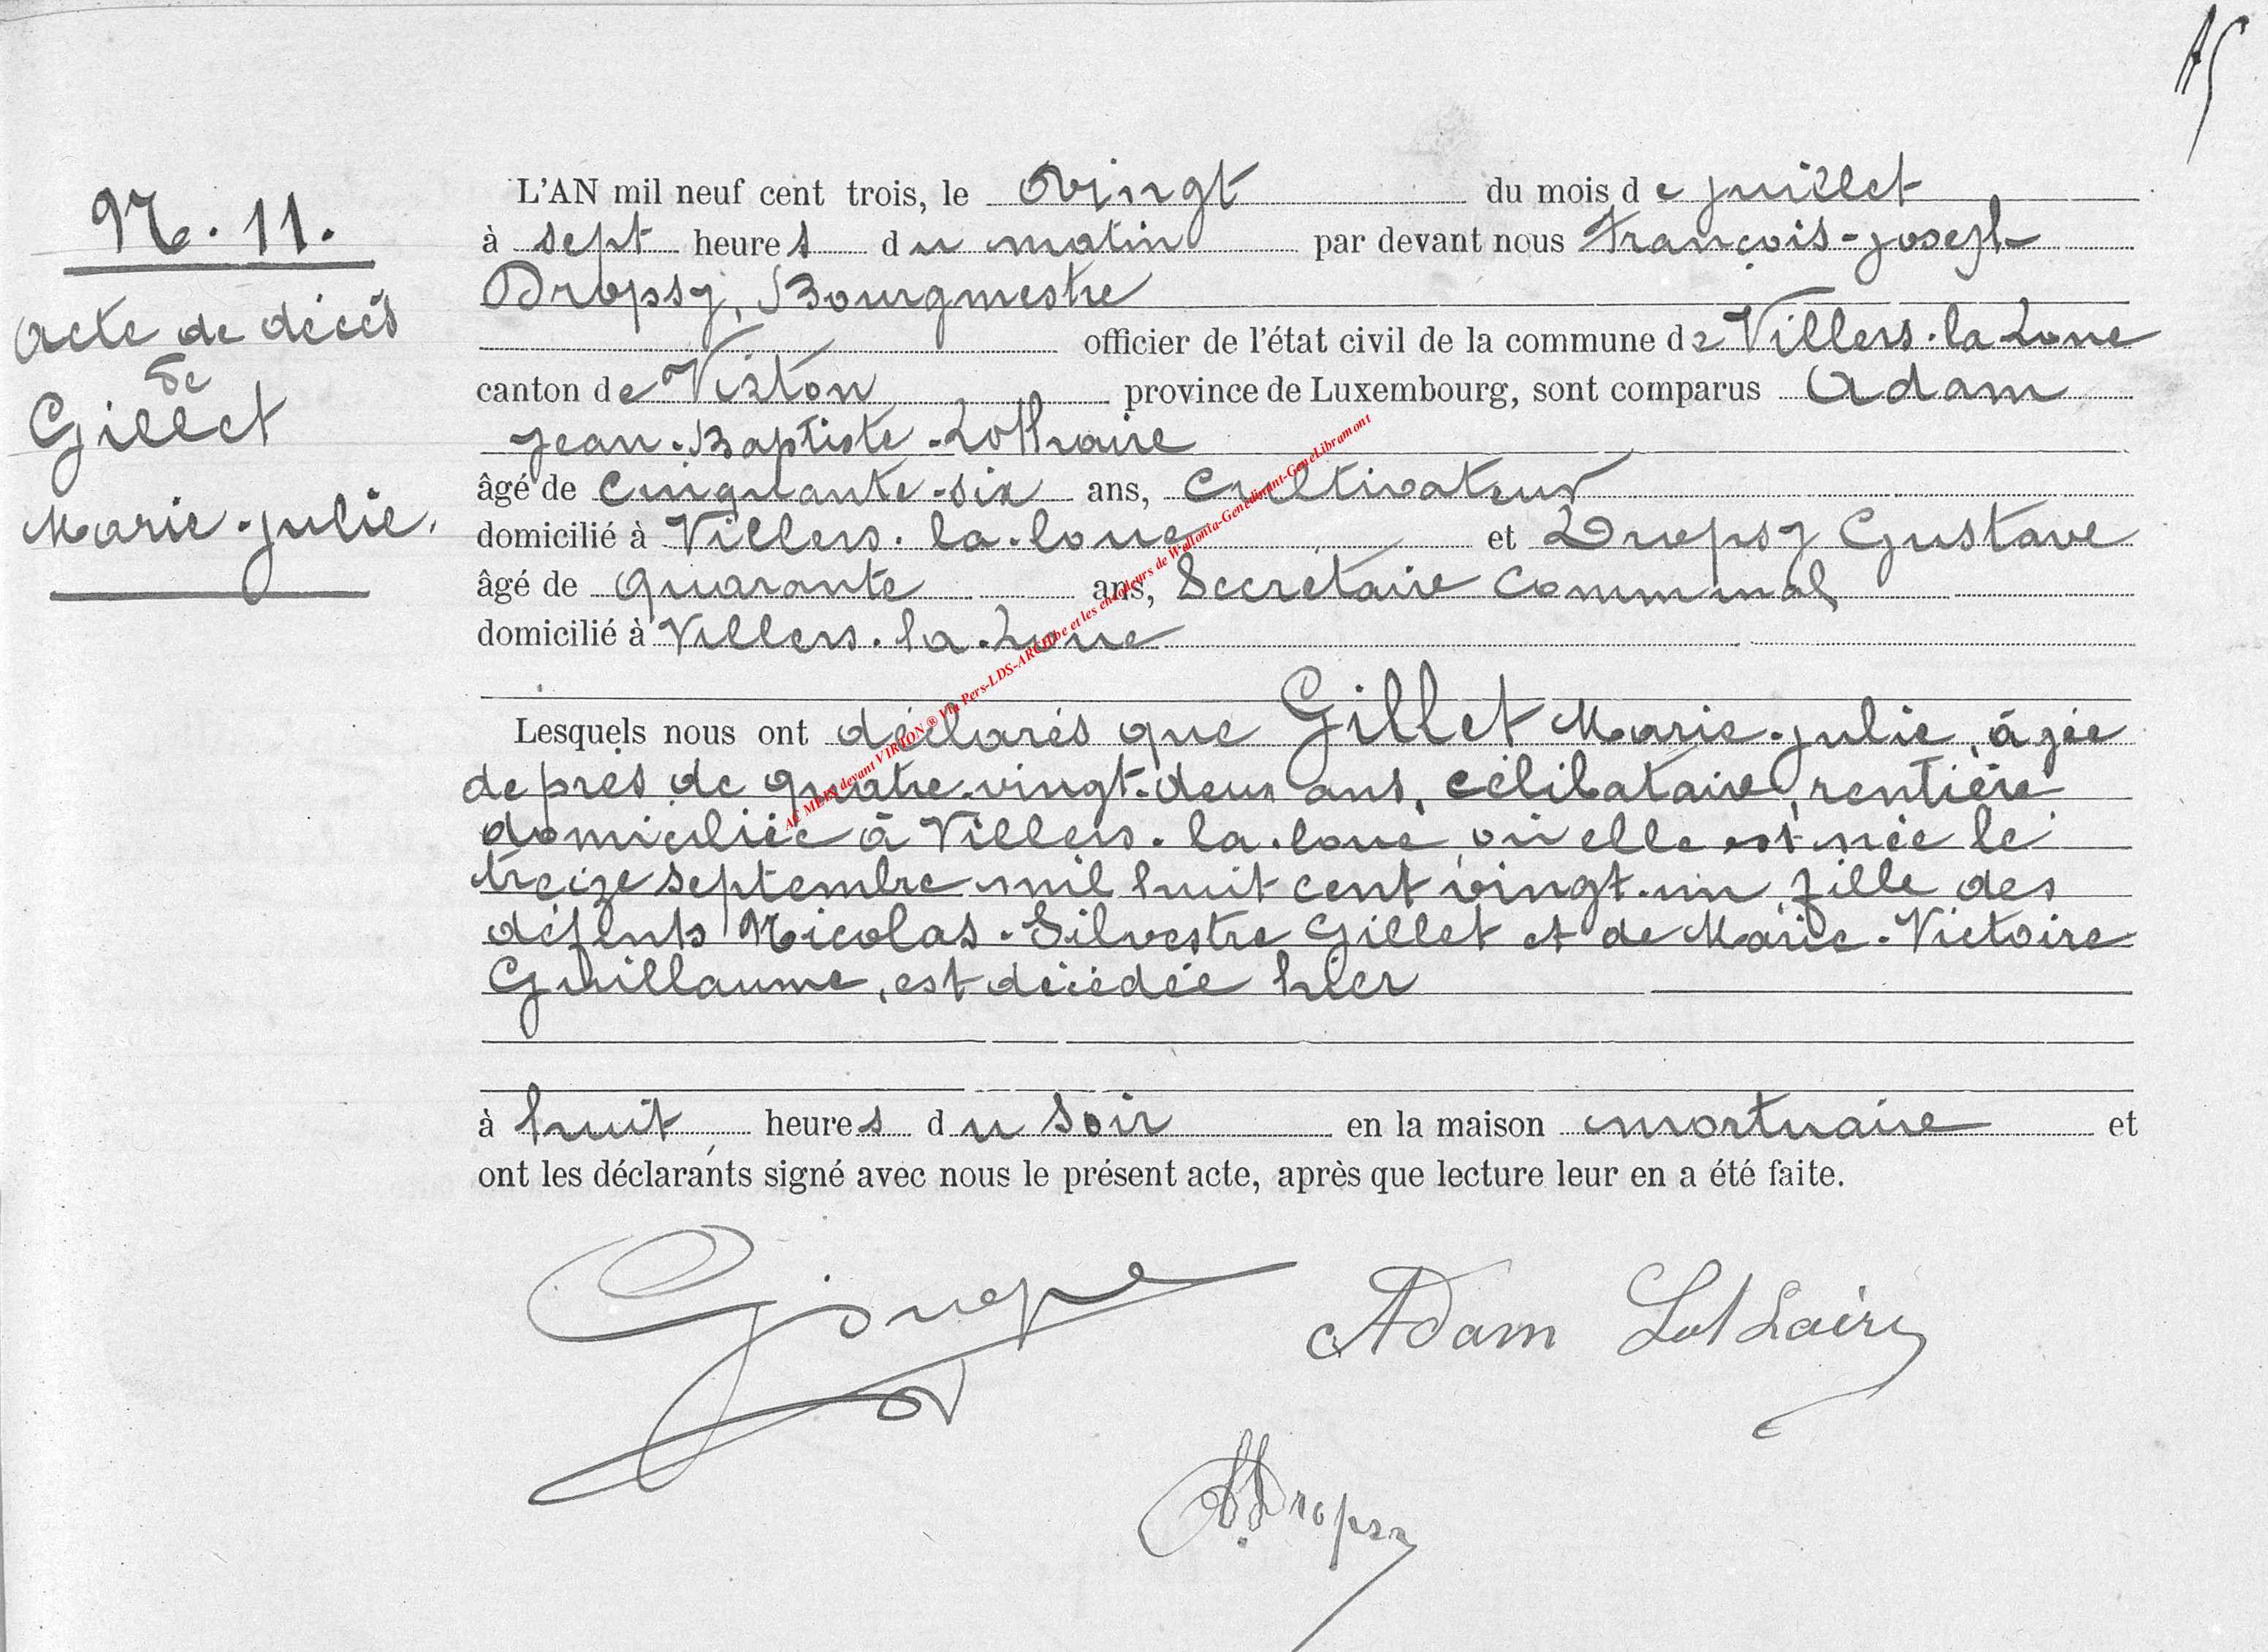 N. 11.
Acte de décès
de
Gillet
Marie-Julie.
L'AN mil neuf cent trois, le Vingt du mois de juillet
à sept heures du matin par devant nous François-Joseph
Dropsy, Bourgmestre
officier de l'état civil de la commune de Villers-la-Loue
canton de Virton province de Luxembourg, sont comparus Adam
Jean-Baptiste-Lothaire
âgé de cinquante-six ans, Cultivateur
domicilié à Villers-la-loue et Dropsy Gustave
âgé de quarante ans, Secrétaire Communal
domicilié à Villers-la-Loue
Lesquels nous ont déclarés que Gillet Marie-Julie, âgée
de près de quatre-vingt-deux ans, célibataire, rentière
domiciliée à Villers-la-loue, où elle est née le
treize septembre mil huit cent vingt-un, fille des
défunts Nicolas-Silvestre Gillet et de Marie-Victoire
Guillaume, est décédée hier
à huit heures du soir en la maison mortuaire et
ont les déclarants signé avec nous le présent acte, après que lecture leur en a été faite.
Adam Lothaire
Dropsy
AC MEIX devant VIRTON ® Via Pers-LDS-ARCH.be et les encodeurs de Wallonia-Genedinant-GeneLibramont